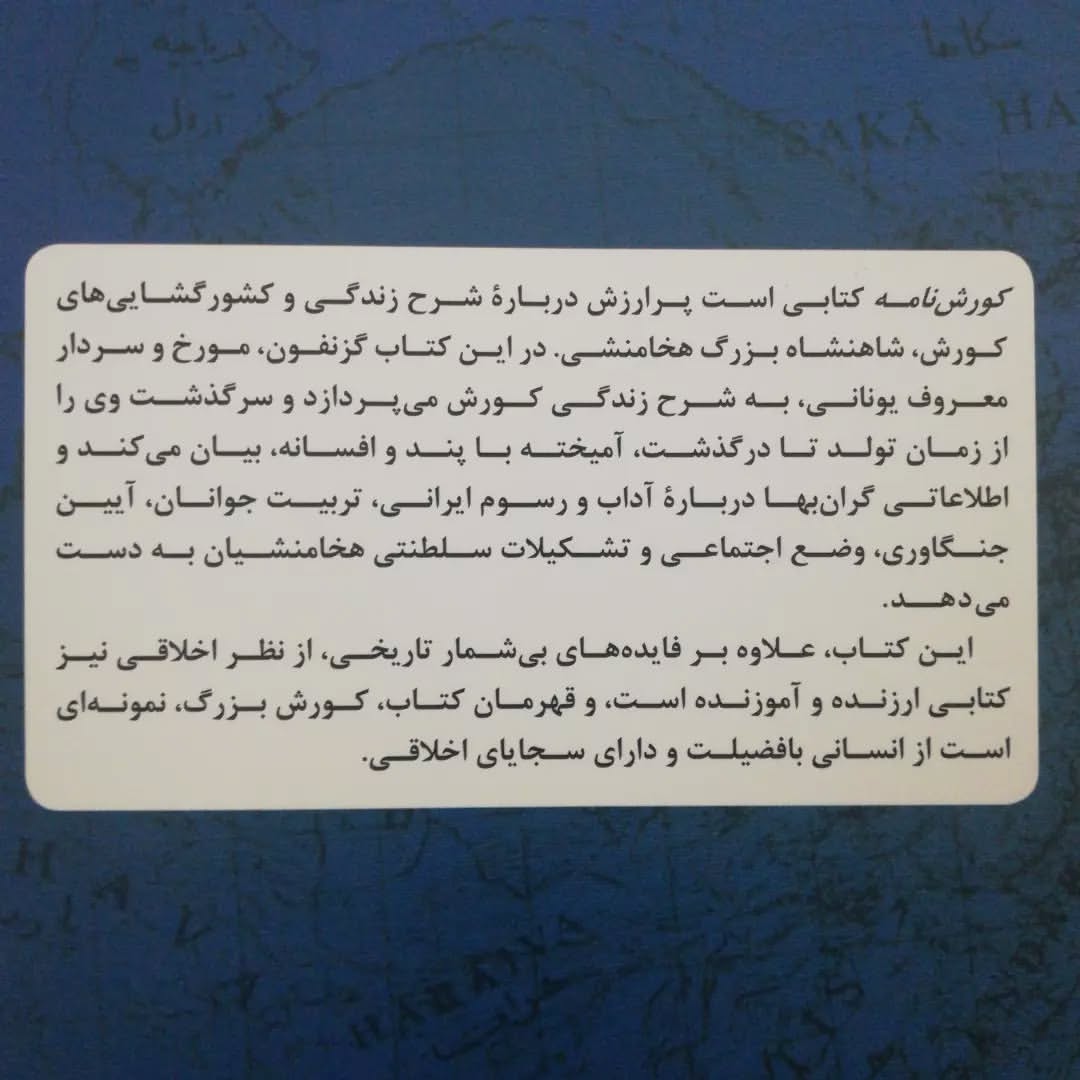 دریاچه
آرال
سکاها
SAKĀ HA
کورش‌نامه کتابی است پرارزش دربارهٔ شرح زندگی و کشورگشایی‌های
کورش، شاهنشاه بزرگ هخامنشی. در این کتاب گزنفون، مورخ و سردار
معروف یونانی، به شرح زندگی کورش می‌پردازد و سرگذشت وی را
از زمان تولد تا درگذشت، آمیخته با پند و افسانه، بیان می‌کند و
اطلاعاتی گران‌بها دربارهٔ آداب و رسوم ایرانی، تربیت جوانان، آیین
جنگاوری، وضع اجتماعی و تشکیلات سلطنتی هخامنشیان به دست
می‌دهد.
این کتاب، علاوه بر فایده‌های بی‌شمار تاریخی، از نظر اخلاقی نیز
کتابی ارزنده و آموزنده است، و قهرمان کتاب، کورش بزرگ، نمونه‌ای
است از انسانی بافضیلت و دارای سجایای اخلاقی.
HARAIVA